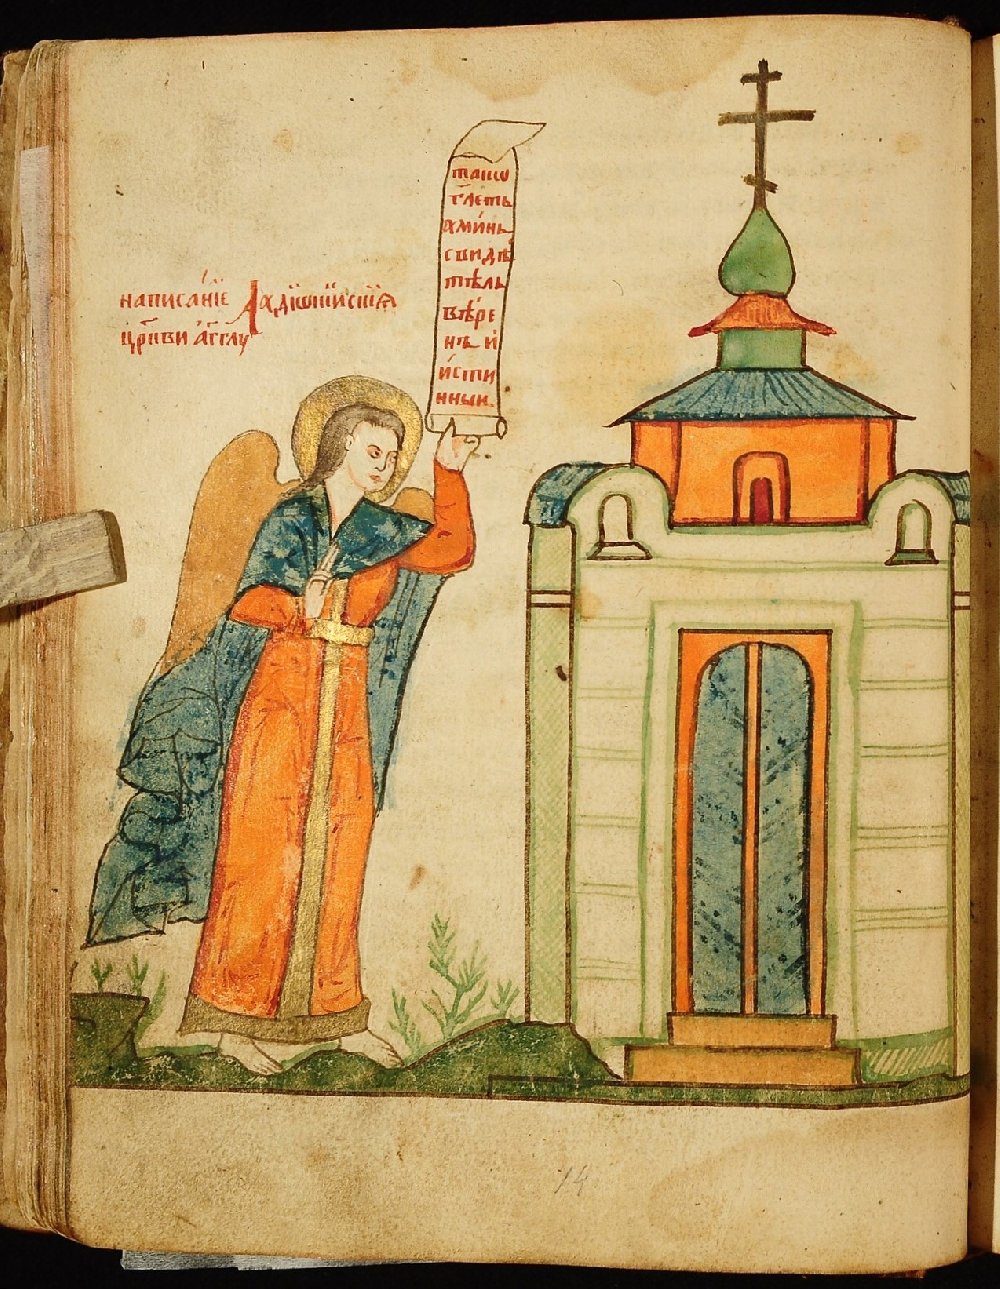 написанїе Ладїѡкїискїѧ
цр҃кви а҆́гг҃лу
такѡ
гл҃етъ
ами́нь
свидѣ
тѣль
вѣ́ре
нъ и
и́сти
нныи
14